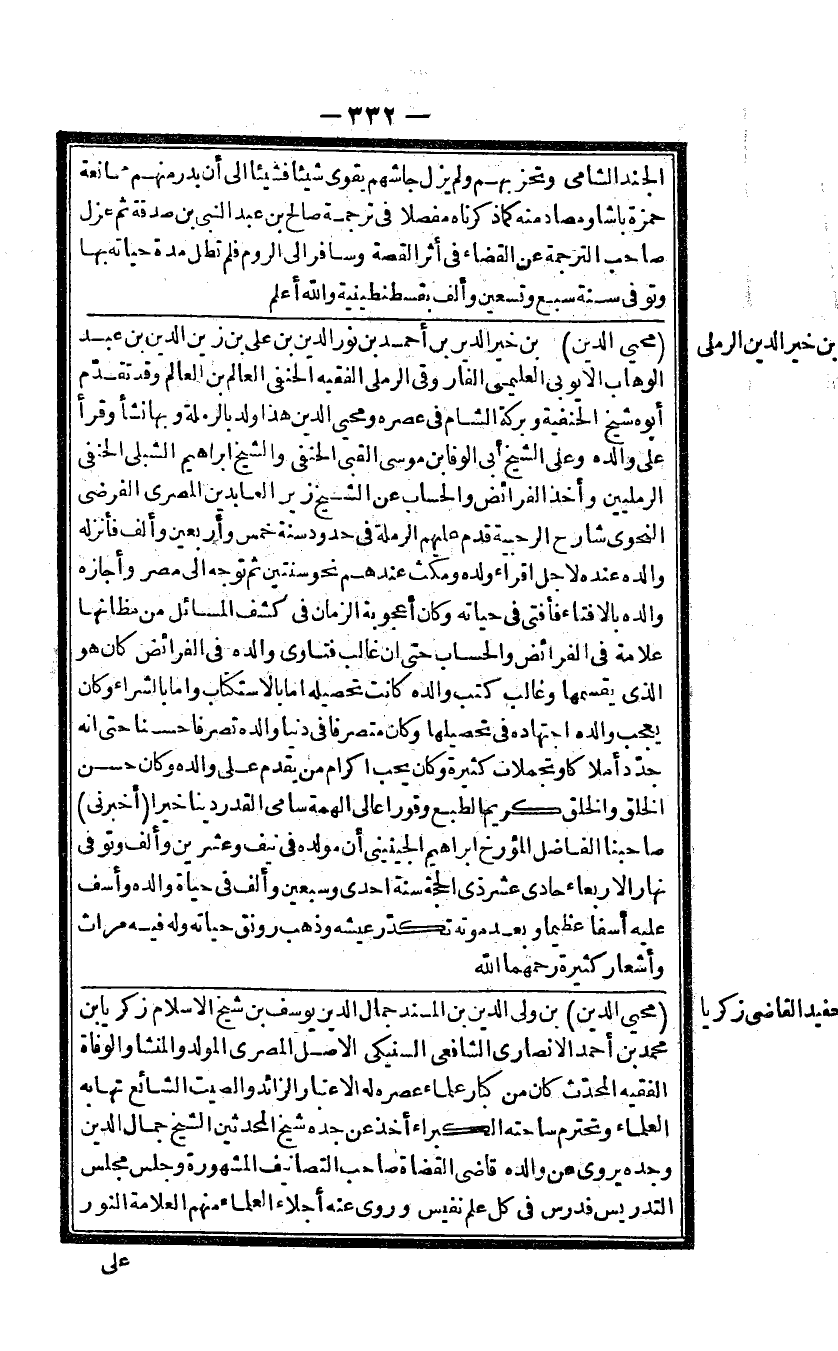 — ٣٣٢ —
الجند الشامى وتحزبهم ولم يزل جاشهم يقوى شيئا فشيئا الى أن بدر منهم ممانعة
حمزة باشا ومصادمته كما ذكرناه مفصلا فى ترجمة صالح بن عبد النبى بن صدقة ثم عزل
صاحب الترجمة عن القضاء فى أثر القصة وسافر الى الروم فلم تطل مدة حياته بها
وتوفى سنة سبع وتسعين وألف بقسطنطينية والله أعلم
بن خير الدين الرملى
(محيى الدين) بن خير الدين بن أحمد بن نور الدين بن على بن زين الدين بن عبد
الوهاب الايوبى العليمى الفاروقى الرملى الفقيه الحنفى العالم بن العالم وقد تقدّم
أبوه شيخ الحنفية وبركة الشام فى عصره ومحيى الدين هذا ولد بالرملة وبها نشأ وقرأ
على والده وعلى الشيخ أبى الوفا بن موسى القبى الحنفى والشيخ ابراهيم الشبلى الحنفى
الرمليين وأخذ الفرائض والحساب عن الشيخ زين العابدين المصرى الفرضى
النحوى شارح الرحبية قدم عليهم الرملة فى حدود سنة خمس وأربعين وألف فأنزله
والده عنده لاجل اقراء ولده ومكث عندهم نحو سنتين ثم توجه الى مصر وأجازه
والده بالافتاء فأفتى فى حياته وكان أعجوبة الزمان فى كشف المسائل من مظانها
علامة فى الفرائض والحساب حتى ان غالب فتاوى والده فى الفرائض كان هو
الذى يقسمها وغالب كتب والده كانت تحصيله اما بالاستكتاب واما بالشراء وكان
يعجب والده اجتهاده فى تحصيلها وكان متصرفا فى دنيا والده تصرفا حسنا حتى انه
جدّد أملاكا وتجملات كثيرة وكان يحب اكرام من يقدم على والده وكان حسن
الخلق والخلق كريم الطبع وقورا عالى الهمة سامى القدر دينا خيرا (أخبرنى)
صاحبنا الفاضل المؤرخ ابراهيم الجينينى أن مولده فى نيف وعشرين وألف وتوفى
نهار الاربعاء حادى عشر ذى الحجة سنة احدى وسبعين وألف فى حياة والده وأسف
عليه أسفا عظيما وبعد موته تكدّر عيشه وذهب رونق حياته وله فيه مراث
وأشعار كثيرة رحمهما الله
حفيد القاضى زكريا
(محيى الدين) بن ولى الدين بن المسند جمال الدين يوسف بن شيخ الاسلام زكريا بن
محمد بن أحمد الانصارى الشافعى السنيكى الاصل المصرى المولد والمنشا والوفاة
الفقيه المحدّث كان من كبار علماء عصره له الاعتبار الزائد والصيت الشائع تهابه
العلماء وتحترم ساحته الكبراء أخذ عن جده شيخ المحدثين الشيخ جمال الدين
وجده يروى عن والده قاضى القضاة صاحب التصانيف المشهورة وجلس مجلس
التدريس فدرس فى كل علم نفيس وروى عنه أجلاء العلماء منهم العلامة النور
على